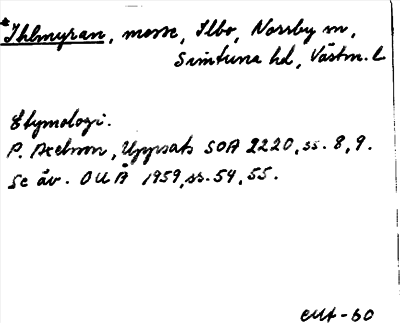 *Ihlmyran, mosse, Ilbo, Norrby m,
Simtuna hd, Västm. L
Etymologi.
P. Axelsson, Uppsats SOA 2220, ss. 8, 9.
Se äv. OUÅ 1959, ss. 54, 55.
-60